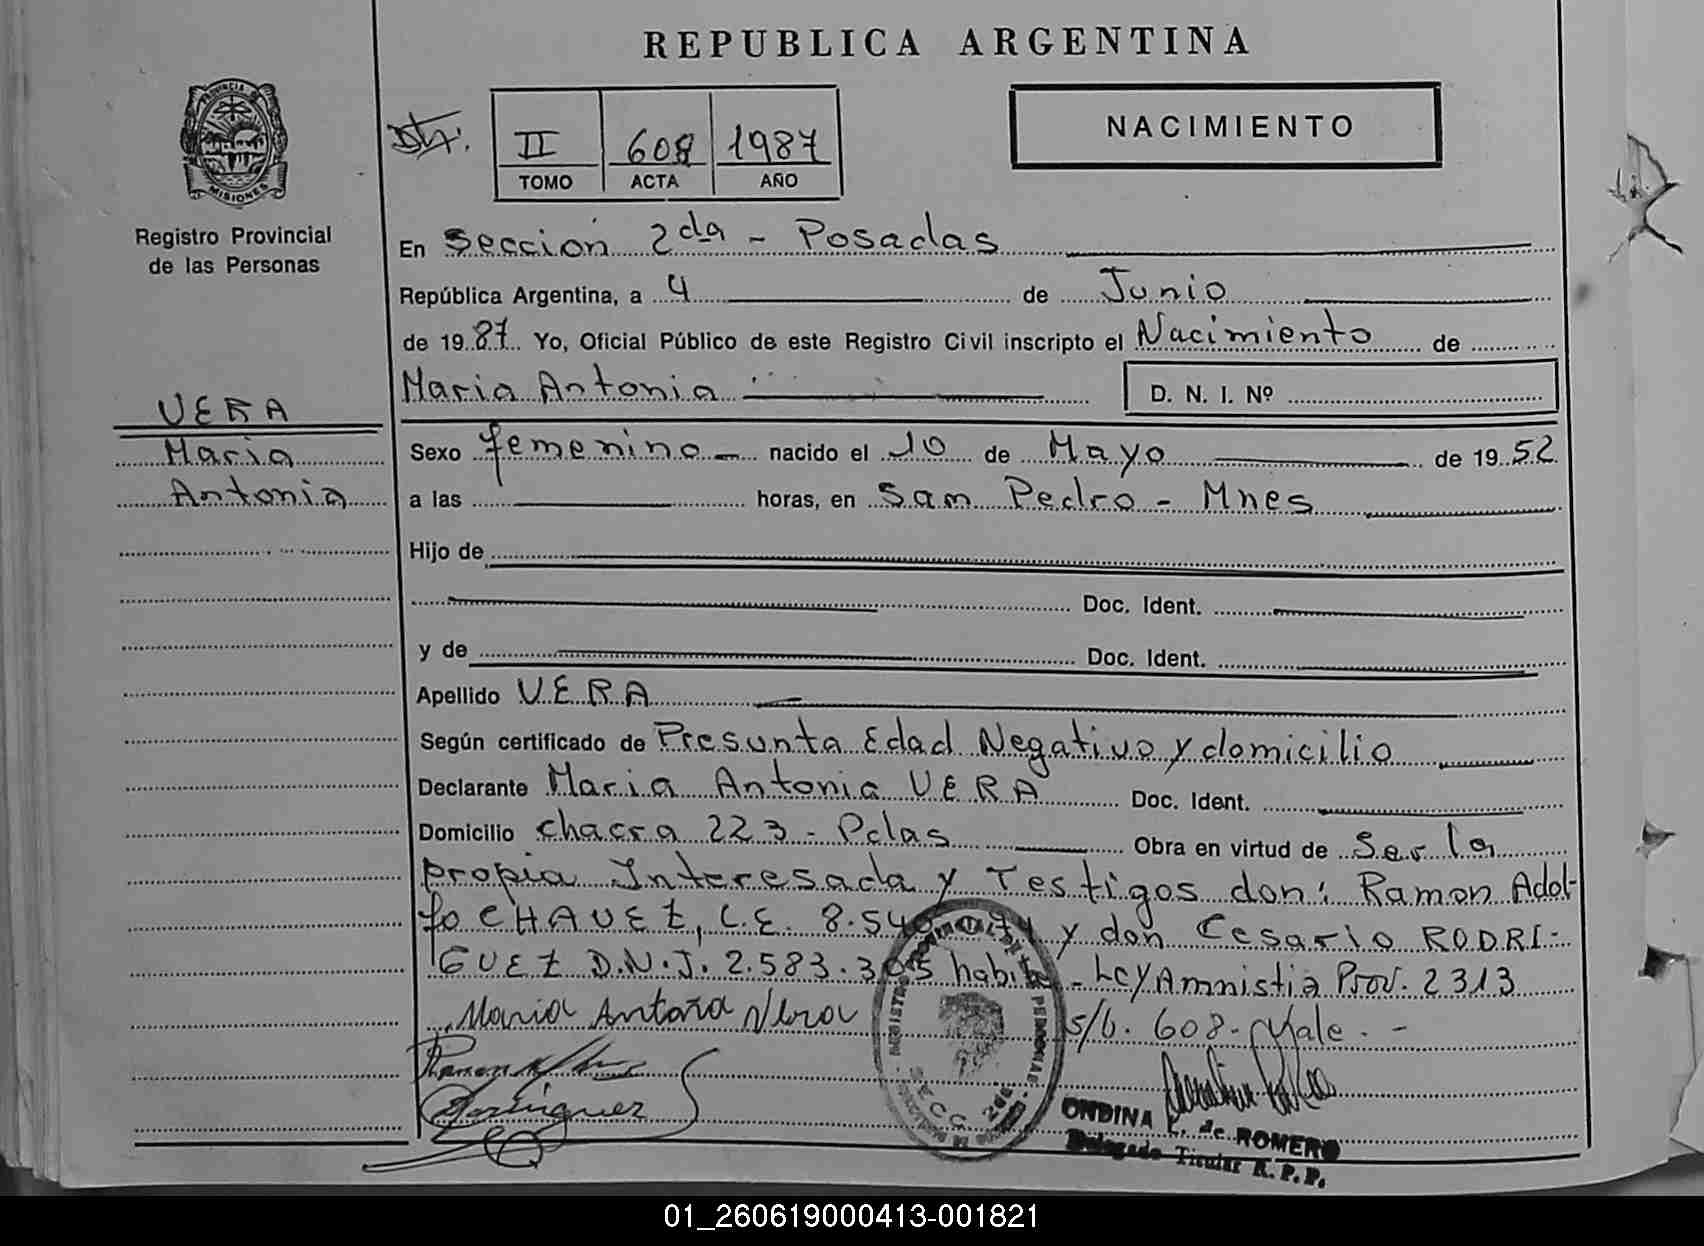 REPUBLICA ARGENTINA
PROVINCIA DE MISIONES
Registro Provincial
de las Personas
II 608 1987
TOMO ACTA AÑO
NACIMIENTO
En Sección 2da - Posadas
República Argentina, a 4 de Junio
de 1987 Yo, Oficial Público de este Registro Civil inscripto el Nacimiento de
Maria Antonia D. N. I. Nº
VERA
Maria
Antonia
Sexo femenino nacido el 10 de Mayo de 1952
a las horas, en San Pedro - Mnes
Hijo de
Doc. Ident.
y de Doc. Ident.
Apellido VERA
Según certificado de Presunta Edad Negativo y domicilio
Declarante Maria Antonia VERA Doc. Ident.
Domicilio chacra 223 - Pdas Obra en virtud de Ser la
propia Interesada y Testigos don: Ramon Adol-
fo CHAVEZ, L.E. 8.540 y don Cesario RODRI-
GUEZ D.N.I. 2.583.305 habil - Ley Amnistia Prov. 2313
Maria Antonia Vera S/b. 608. Vale. -
Ramon
Domínguez
REGISTRO PROVINCIAL DE PERSONAS
SECC. 2da
ONDINA L. de ROMERO
Delegado Titular R. P. P.
01_260619000413-001821